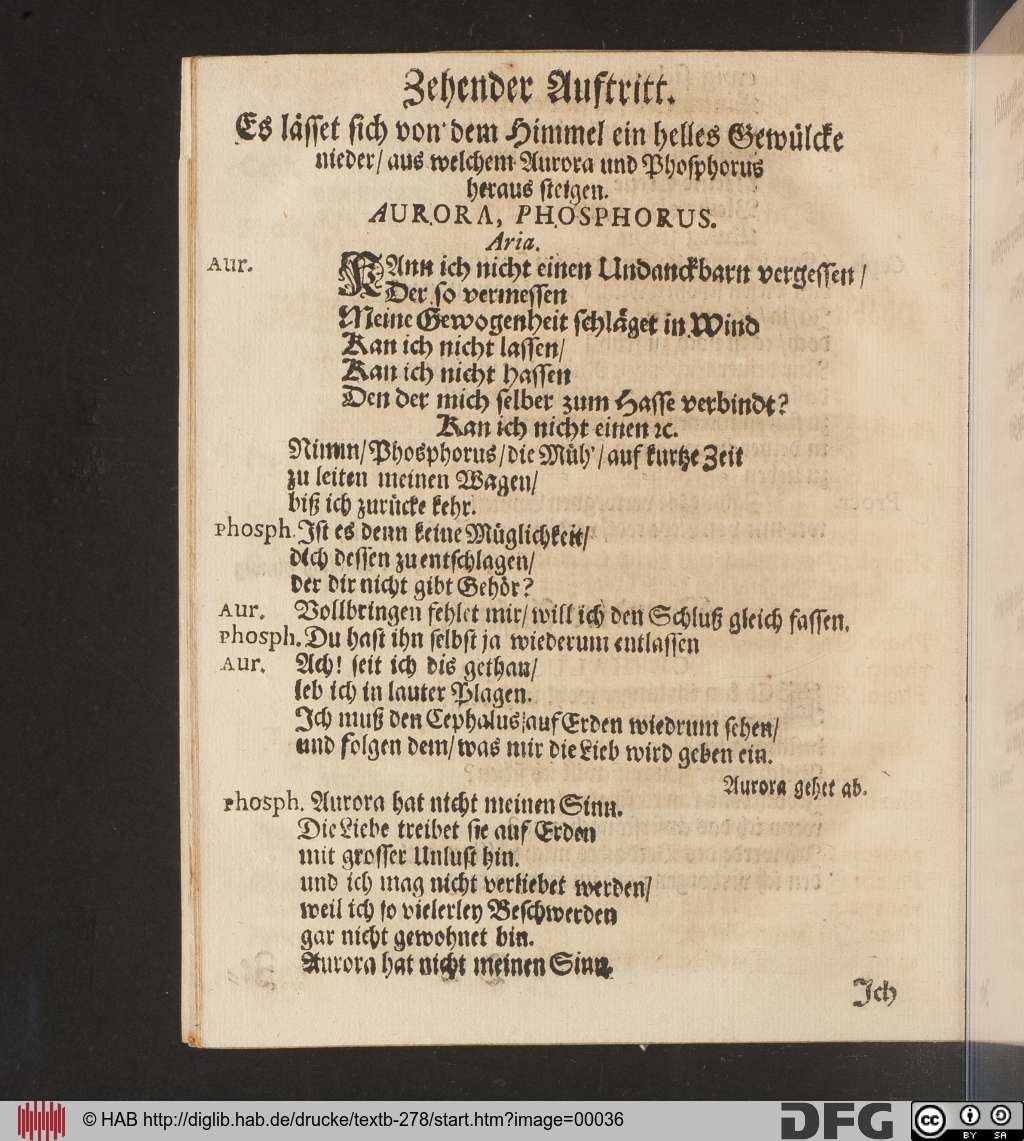 Zehender Auftritt.
Es lässet sich von dem Himmel ein helles Gewülcke
nieder/ aus welchem Aurora und Phosphorus
heraus steigen.
AURORA, PHOSPHORUS.
Aria.
Aur. KAnn ich nicht einen Undanckbarn vergessen/
Der so vermessen
Meine Gewogenheit schläget in Wind
Kan ich nicht lassen/
Kan ich nicht hassen
Den der mich selber zum Hasse verbindt?
Kan ich nicht einen ꝛc.
Nimm/ Phosphorus/ die Müh'/ auf kurtze Zeit
zu leiten meinen Wagen/
biß ich zurücke kehr.
Phosph. Ist es denn keine Müglichkeit/
dich dessen zu entschlagen/
der dir nicht gibt Gehör?
Aur. Vollbringen fehlet mir/ will ich den Schluß gleich fassen.
Phosph. Du hast ihn selbst ja wiederum entlassen
Aur. Ach! seit ich dis gethan/
leb ich in lauter Plagen.
Ich muß den Cephalus auf Erden wiedrum sehen/
und folgen dem/ was mir die Lieb wird geben ein.
Aurora gehet ab.
Phosph. Aurora hat nicht meinen Sinn.
Die Liebe treibet sie auf Erden
mit grosser Unlust hin.
und ich mag nicht verliebet werden/
weil ich so vielerley Beschwerden
gar nicht gewohnet bin.
Aurora hat nicht meinen Sinn.
Ich
© HAB http://diglib.hab.de/drucke/textb-278/start.htm?image=00036
DFG
cc BY SA